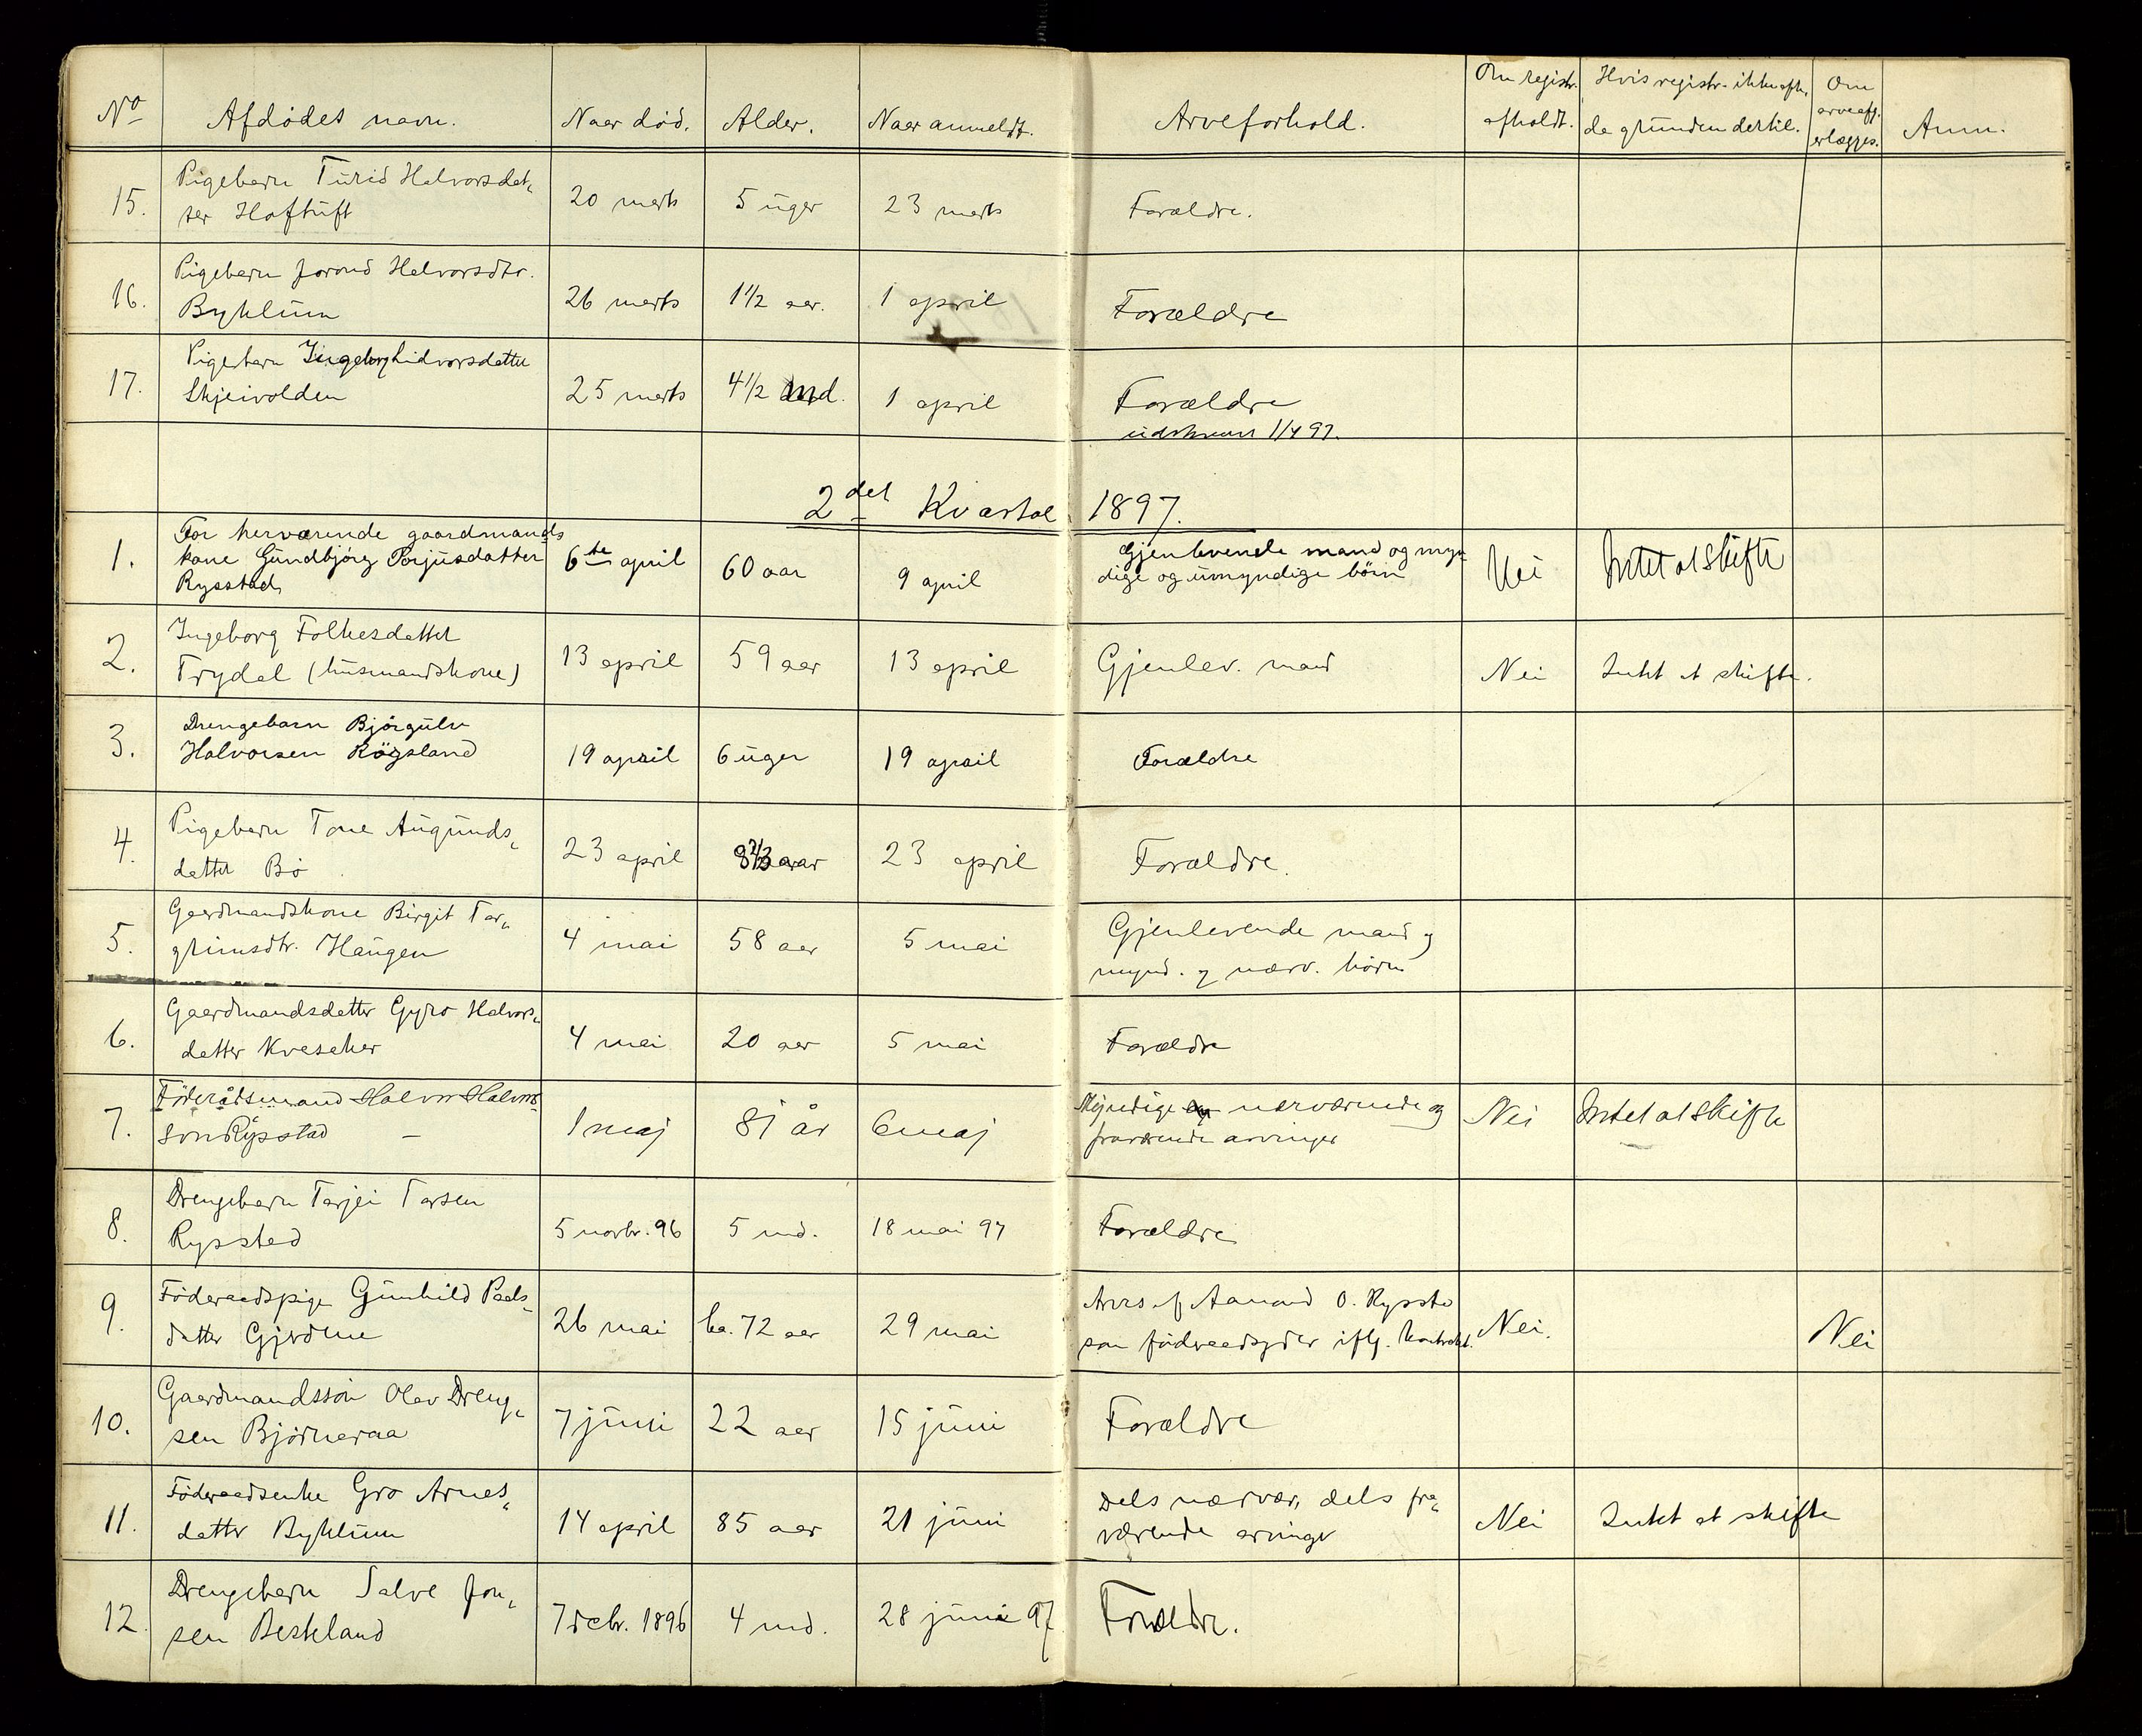 No Afdödes navn. Naar död. Alder. Naar anmeldt. Arveforhold. Om registr. afholdt. Hvis registr. ikke afh., da grunden dertil. Om arveafg. erlægges. Anm.
15. Pigebarn Turid Halvorsdat- 20 marts 5 uger 23 marts Forældre.
ter Hoftuft
16. Pigebarn Jorond Halvorsdtr. 26 marts 1½ aar. 1 april Forældre
Byklum
17. Pigebarn Ingeborg Lidvorsdatter 25 marts 4½ md. 1 april Forældre
Skjeivolden
udskrevet 1/4 97.
2det Kvartal 1897.
1. For herværende gaardmands 6te april 60 aar 9 april Gjenlevende mand og myn Nei Intet at skifte
kone Gundbjörg Torjusdatter dige og umyndige börn
Rysstad
2. Ingeborg Folkesdatter 13 april 59 aar 13 april Gjenlev. mand Nei Intet at skifte.
Trydal (husmandskone)
3. Drengebarn Björgulv 19 april 6 uger 19 april Forældre
Halvorsen Rögsland
4. Pigebarn Tone Augunds- 23 april 8⅔ aar 23 april Forældre.
datter Bö
5. Gaardmandskone Birgit Tar- 4 mai 58 aar 5 mai Gjenlevende mand og
grimsdtr. Haugen mynd. og nærv. börn
6. Gaardmandsdatter Gyro Halvors- 4 mai 20 aar 5 mai Forældre
datter Kveseker
7. Föderådsmand Halvor Halvor- 1 maj 81 år 6 maj Myndige nærværende og Nei Intet at skifte
son Rysstad — fraværende arvinger
8. Drengebarn Tarjei Tarsen 5 novbr. 96 5 md. 18 mai 97 Forældre
Rysstad
9. Föderaadspige Gunhild Paals- 26 mai ca. 72 aar 29 mai Arves af Aanond O. Rysstad Nei. Nei
datter Gjerdme som föderaadsyder iflg. kontrakt.
10. Gaardmandssön Olav Dreng- 7 juni 22 aar 15 juni Forældre
sen Björneraa
11. Föderaadsenke Gro Arnes- 14 april 85 aar 21 juni Dels nærvær, dels fra- Nei Intet at skifte
datter Byklum værende arvinger
12. Drengebarn Salve Jon- 7 decbr. 1896 4 md. 28 juni 97 Forældre.
sen Besteland